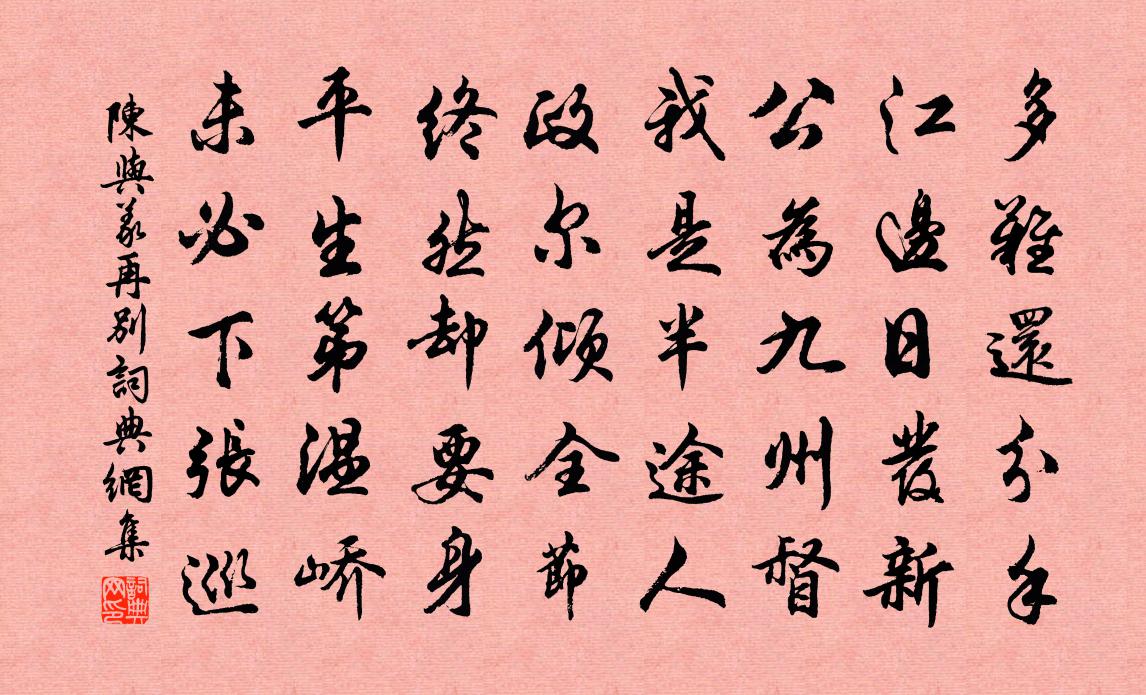 多難還分手
江邊日發新
公為九州督
我是半途人
政尔傾全節
終然却要身
平生第溫嶠
未必下張巡
陳與義再別詞典網集
詞典网印